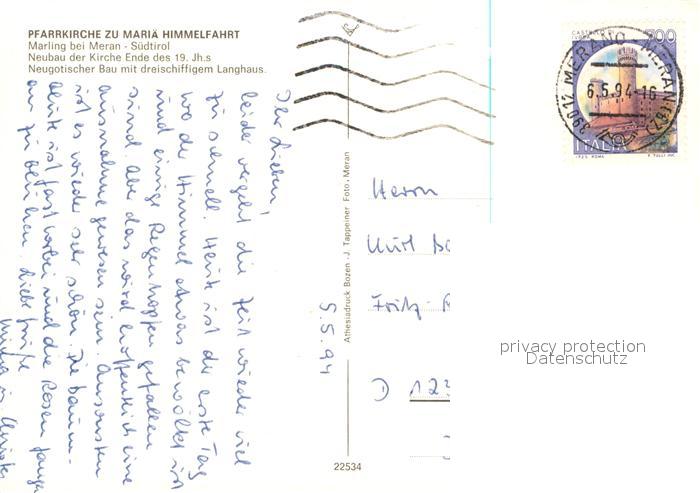 PFARRKIRCHE ZU MARIÄ HIMMELFAHRT
Marling bei Meran - Südtirol
Neubau der Kirche Ende des 19. Jh.s
Neugotischer Bau mit dreischiffigem Langhaus.
5.5.94
leider vergeht die Zeit wieder viel
zu schnell. Heute ist der erste Tag
wo der Himmel etwas bewölkt ist
und einige Regentropfen gefallen
sind. Aber das wird hoffentlich eine
Ausnahme gewesen sein. Ansonsten
ist es wieder sehr schön. Die Baum-
blüte ist fast vorbei und die Rosen fangen
an zu blühen. Liebe Grüße
Athesiadruck Bozen - J. Tappeiner Foto, Meran
22534
Herrn
Kurt Be
Fritz-
D 122
CASTELLO DI
700
ITALIA
I.P.Z.S. ROMA
39012 MERANO - MERAN (BZ)
6.5.94-16
privacy protection
Datenschutz